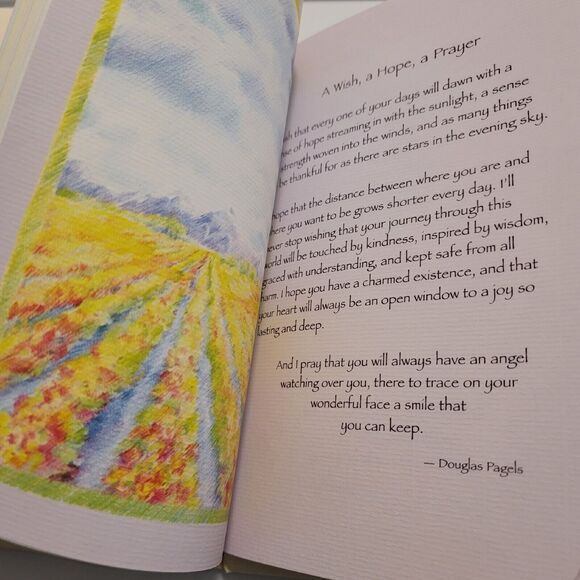 A Wish, a Hope, a Prayer
that every one of your days will dawn with a
of hope streaming in with the sunlight, a sense
strength woven into the winds, and as many things
be thankful for as there are stars in the evening sky.
hope that the distance between where you are and
you want to be grows shorter every day. I'll
stop wishing that your journey through this
will be touched by kindness, inspired by wisdom,
graced with understanding, and kept safe from all
harm. I hope you have a charmed existence, and that
your heart will always be an open window to a joy so
lasting and deep.
And I pray that you will always have an angel
watching over you, there to trace on your
wonderful face a smile that
you can keep.
— Douglas Pagels